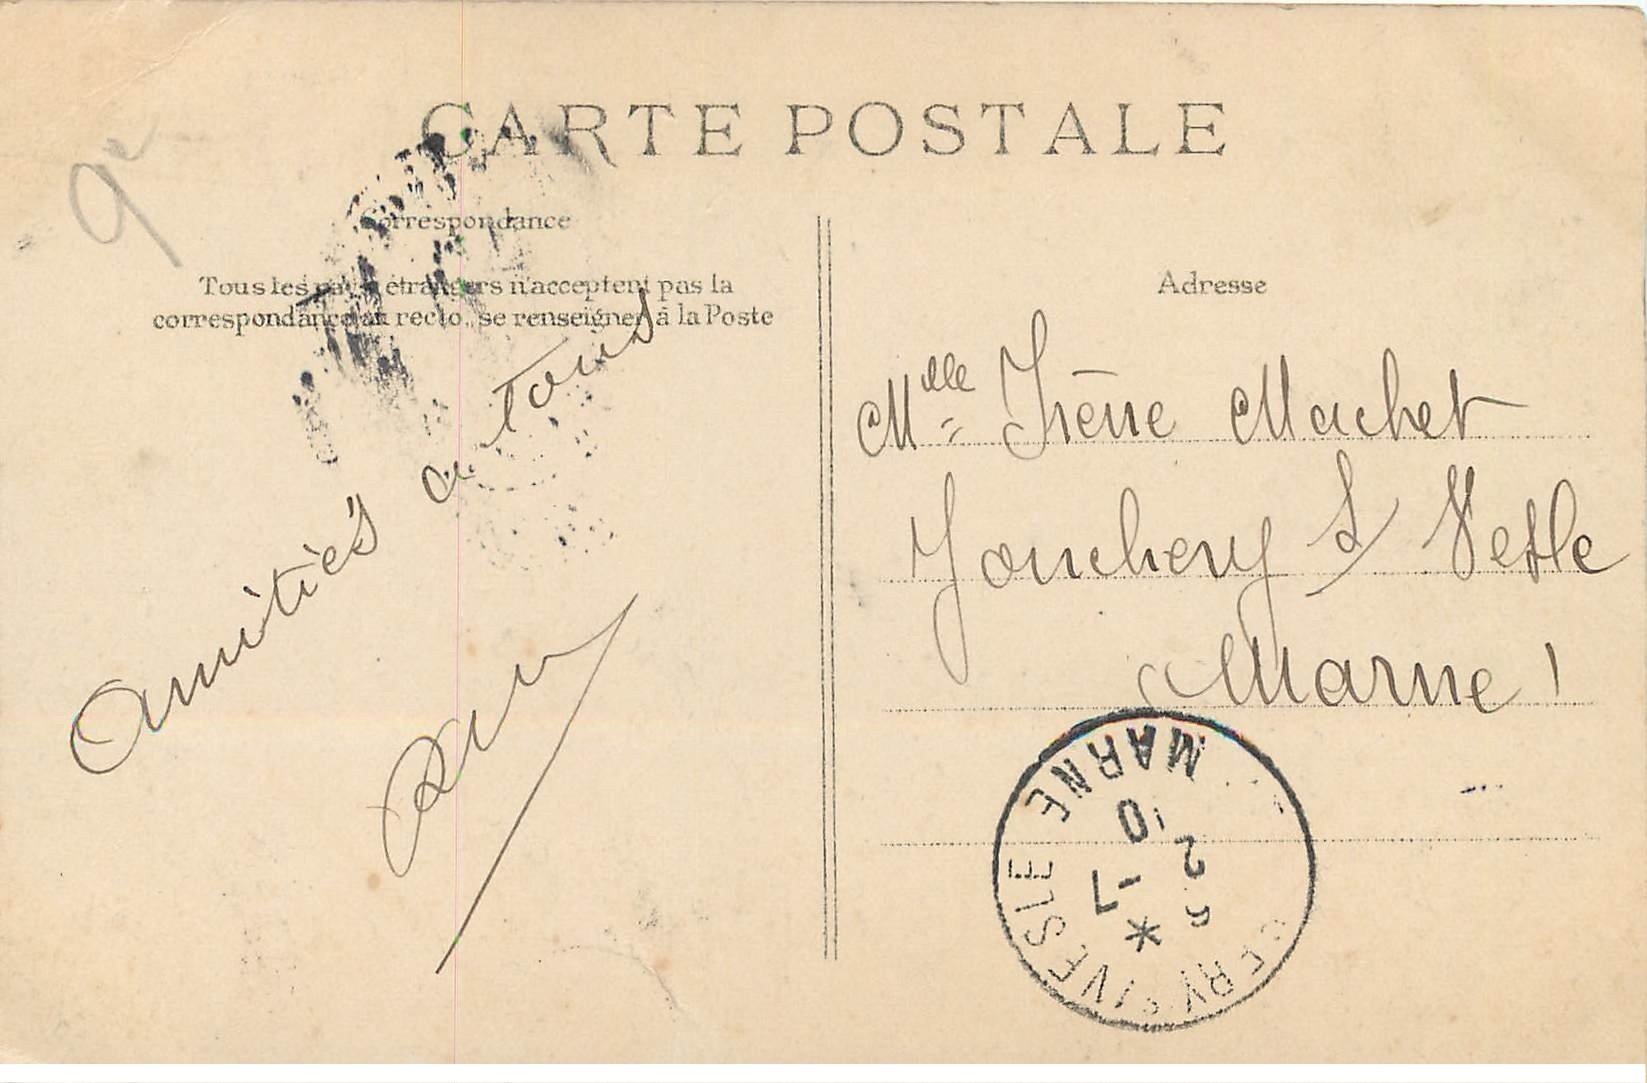 CARTE POSTALE
9e
Correspondance
Tous les pays étrangers n'acceptent pas la
correspondance au recto, se renseigner à la Poste
Amitiés a tous
Adresse
Mlle Irène Machet
Jonchery s/ Vesle
Marne
CERY S/VESLE
MARNE